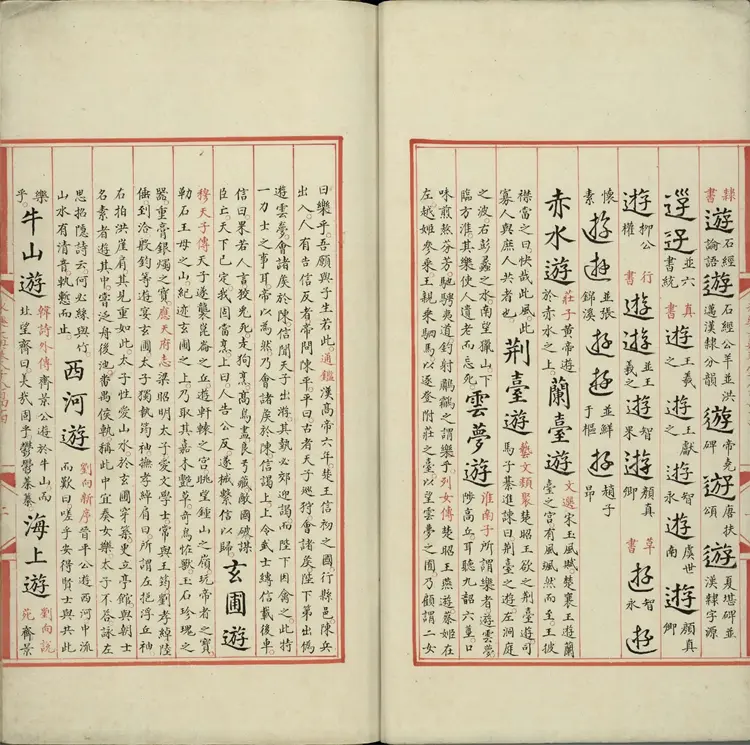 隸書 遊 石經論語 石經公羊並洪邁漢隸分韻 遊 帝堯碑 遊 唐扶頌 遊 夏堪碑並漢隸字源
並六書統 真書 遊 王羲之 遊 王獻之 遊 智永 遊 虞世南 遊 顏真卿
遊 柳公權 行書 遊 遊 並王羲之 遊 智果 遊 顏真卿 草書 遊 智永 遊
懷素 遊 遊 並張錦溪 遊 遊 並鮮于樞 遊 趙子昂
赤水遊 莊子黃帝遊於赤水之上。 蘭臺遊 文選宋玉風賦楚襄王遊蘭臺之宮有風颯然而至。王披
襟當之曰快哉此風此寡人與庶人共者也。 荆臺遊 藝文類聚楚昭王欲之荆臺遊司馬子綦進諫曰荆臺之遊左洞庭
之波。右彭蠡之水。南望獵山下臨方淮。其樂使人遺老而忘死。 雲夢遊 淮南子所謂樂者遊雲夢。陟高丘耳聽九韶六莖。口
味煎熬芬芳。馳騁夷道。釣射鷫鷞之謂樂乎。列女傳楚昭王燕遊蔡姬在
左越姬參乘。王親乘駟馬以逐登附莊之臺。以望雲夢之囿乃顧謂二女
曰樂乎。吾願與子生若此。通鑑漢高帝六年。楚王信初之國行縣邑陳兵
出入。人有告信反者帝問陳平。平曰古者天子巡狩會諸矦陛下第出偽
遊雲夢。會諸矦於陳。信聞天子出游其埶必郊迎謁而陛下因禽之。此特
一力士之事耳。帝以為然。乃會諸矦於陳信謁上。上令武士縛信載後車。
信曰果若人言狡兔死走狗烹。高鳥盡良弓藏敵國破謀臣亡。天下已定。我固當烹。上曰人告公反。遂械繫信以歸。 玄圃遊
穆天子傳天子遂襲崑崙之丘。遊軒轅之宮。眺望鍾山之嶺。玩帝者之寶。
勒石王母之山。紀迹玄圃之上。乃取其嘉木艷草。奇鳥怪獸。玉石珍瑰之
器。重膏銀燭之寶。應天府志梁昭明太子愛文學士。常與王筠劉孝綽陸
倕到洽殷鈞等遊宴玄圃。太子獨執筠袖撫孝綽肩曰。所謂左把浮丘袖
右拍洪崖肩。其見重如此。太子性愛山水。於玄圃穿築。更立亭館。與朝士
名素者遊其中。嘗泛舟後池。番禺侯軌稱此中宜奏女樂。太子不荅。詠左
思招隱詩云。何必絲與竹。山水有清音。軌慙而止。 西河遊 劉向新序晉平公遊西河中流而歎曰嗟乎安得賢士與共此
樂乎。 牛山遊 韓詩外傳齊景公遊於牛山。而北望齊曰。美哉國乎。鬱鬱蓁蓁 海上遊 劉向說苑齊景